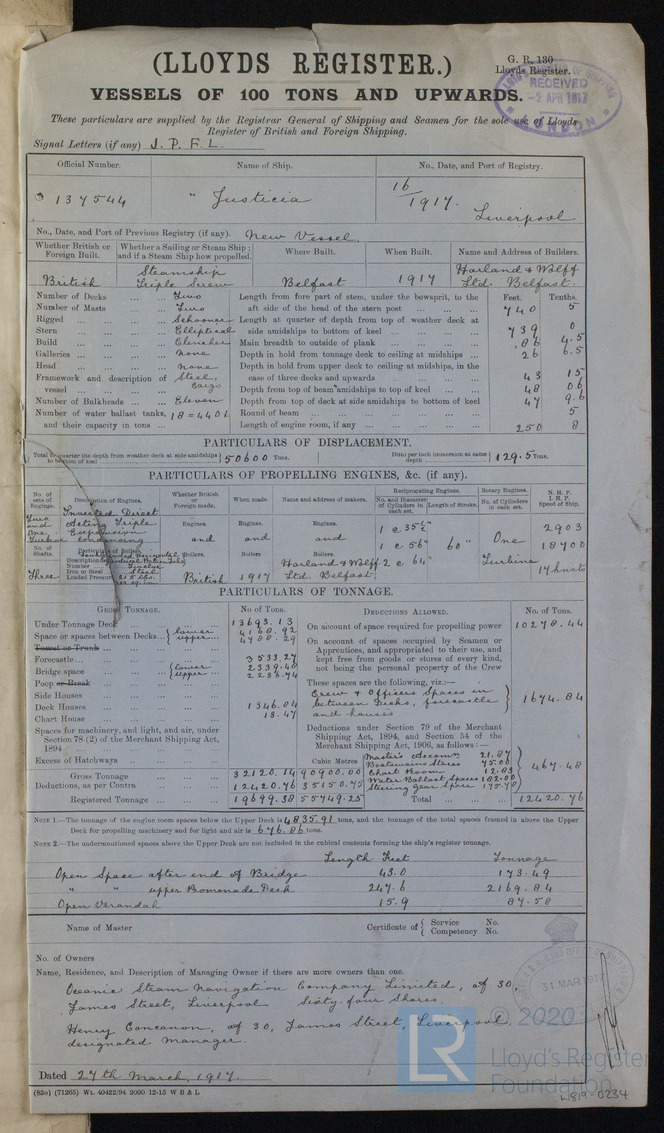 (LLOYDS REGISTER.)
G. R. 130
Lloyds Register.
RECEIVED
-2 APR 1917
LONDON
VESSELS OF 100 TONS AND UPWARDS.
These particulars are supplied by the Registrar General of Shipping and Seamen for the sole use of Lloyds
Register of British and Foreign Shipping.
Signal Letters (if any) J. P. F. L.
Official Number. Name of Ship. No., Date, and Port of Registry.
137544 " Justicia 16/1917. Liverpool
No., Date, and Port of Previous Registry (if any). New Vessel.
Whether British or Foreign Built. Whether a Sailing or Steam Ship; and if a Steam Ship how propelled. Where Built. When Built. Name and Address of Builders.
British Steamship Triple Screw Belfast 1917 Harland & Wolff Ltd. Belfast.
Number of Decks ... ... Two
Number of Masts ... ... Two
Rigged ... ... Schooner
Stern ... ... Elliptical
Build ... ... Clencher
Galleries ... ... None
Head ... ... None
Framework and description of vessel ... Steel, Cargo
Number of Bulkheads ... Eleven
Number of water ballast tanks, and their capacity in tons ... 18=4401
Feet. Tenths.
Length from fore part of stem, under the bowsprit, to the aft side of the head of the stern post 740 5
Length at quarter of depth from top of weather deck at side amidships to bottom of keel 739 0
Main breadth to outside of plank 86 4.5
Depth in hold from tonnage deck to ceiling at midships 26 6.5
Depth in hold from upper deck to ceiling at midships, in the case of three decks and upwards 43 15
Depth from top of beam amidships to top of keel 48 06
Depth from top of deck at side amidships to bottom of keel 47 9.6
Round of beam 5
Length of engine room, if any 250 8
PARTICULARS OF DISPLACEMENT.
Total to quarter the depth from weather deck at side amidships to bottom of keel 50600 Tons. Ditto per inch immersion at same depth 129.5 Tons.
PARTICULARS OF PROPELLING ENGINES, &c. (if any).
No. of sets of Engines. Description of Engines. Whether British or Foreign made. When made. Name and address of makers. Reciprocating Engines. Rotary Engines. N. H. P. I. H. P. Speed of Ship.
No. and Diameter of Cylinders in each set. Length of Stroke. No. of Cylinders in each set.
Two and One Turbine Inverted Direct Acting Triple Expansion Condensing
No. of Shafts. Particulars of Boilers.
Description
Number
Iron or Steel Steel
Loaded Pressure 215 lbs.
Three
Engines. Engines. Engines.
and and and
Boilers Boilers Boilers.
British 1917 Harland & Wolff Ltd. Belfast
1 @ 35½"
1 @ 56" 60"
2 @ 64"
One Turbine
2903
18700
17 knots
PARTICULARS OF TONNAGE.
GROSS TONNAGE. No. of Tons.
Under Tonnage Deck 13693.13
Space or spaces between Decks lower 4168.92
upper 4788.29
Turret or Trunk
Forecastle 3533.27
Bridge space lower 2339.48
upper 2236.74
Poop or Break
Side Houses
Deck Houses 1346.84
Chart House 13.47
Spaces for machinery, and light, and air, under Section 78 (2) of the Merchant Shipping Act, 1894
Excess of Hatchways
Cubic Metres
Gross Tonnage 32120.14 90900.00
Deductions, as per Contra 12420.76 35150.75
Registered Tonnage 19699.38 55749.25
DEDUCTIONS ALLOWED. No. of Tons.
On account of space required for propelling power 10278.44
On account of spaces occupied by Seamen or Apprentices, and appropriated to their use, and kept free from goods or stores of every kind, not being the personal property of the Crew
These spaces are the following, viz.:—
Crew & Officers Spaces in between Decks, forecastle and houses 1674.84
Deductions under Section 79 of the Merchant Shipping Act, 1894, and Section 54 of the Merchant Shipping Act, 1906, as follows:—
Master's Accomn 21.87
Boatswains Stores 75.00
Chart Room 12.83
Water Ballast Spaces 182.00
Steering Gear Space 175.78
467.48
Total 12420.76
NOTE 1.—The tonnage of the engine room spaces below the Upper Deck is 4835.91 tons, and the tonnage of the total spaces framed in above the Upper Deck for propelling machinery and for light and air is 676.86 tons.
NOTE 2.—The undermentioned spaces above the Upper Deck are not included in the cubical contents forming the ship's register tonnage.
Length Feet Tonnage
Open Space after end of Bridge 43.0 173.49
" " upper Promenade Deck 247.6 2169.84
Open Verandah 15.9 87.58
Name of Master Certificate of Service No. Competency No.
No. of Owners
Name, Residence, and Description of Managing Owner if there are more owners than one.
Oceanic Steam Navigation Company Limited, of 30,
James Street, Liverpool Sixty-four Shares.
Henry Concanon, of 30, James Street, Liverpool,
designated manager.
31 MAR 1917
© 2020
LR
Lloyd's Register
Foundation
Dated 27th March, 1917.
(85o) (71265) Wt. 40422/94 2000 12-15 W B & L
W819-0234